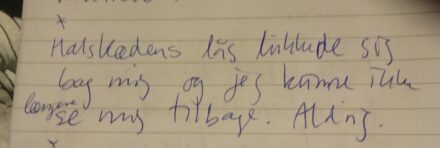 Halskædens lås lukkede sig
bag mig og jeg kunne ikke
længere se mig tilbage. Aldrig.